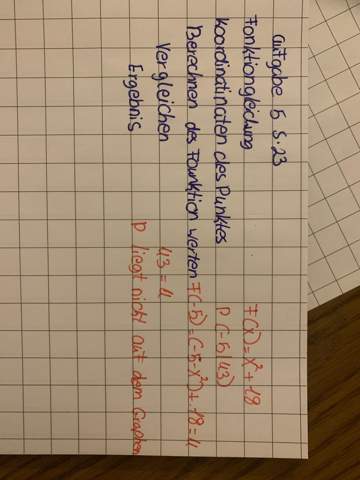 Aufgabe 5 S.23
Fonktiongleichung F(x)=x²+18
Koordinatinaten des Punktes P (-5|43)
Berechnen des Founktion werten F(-5)=(-5-x²)+18=4
Vergleichen 43=4
Ergebnis P liegt nicht auf dem Graphen